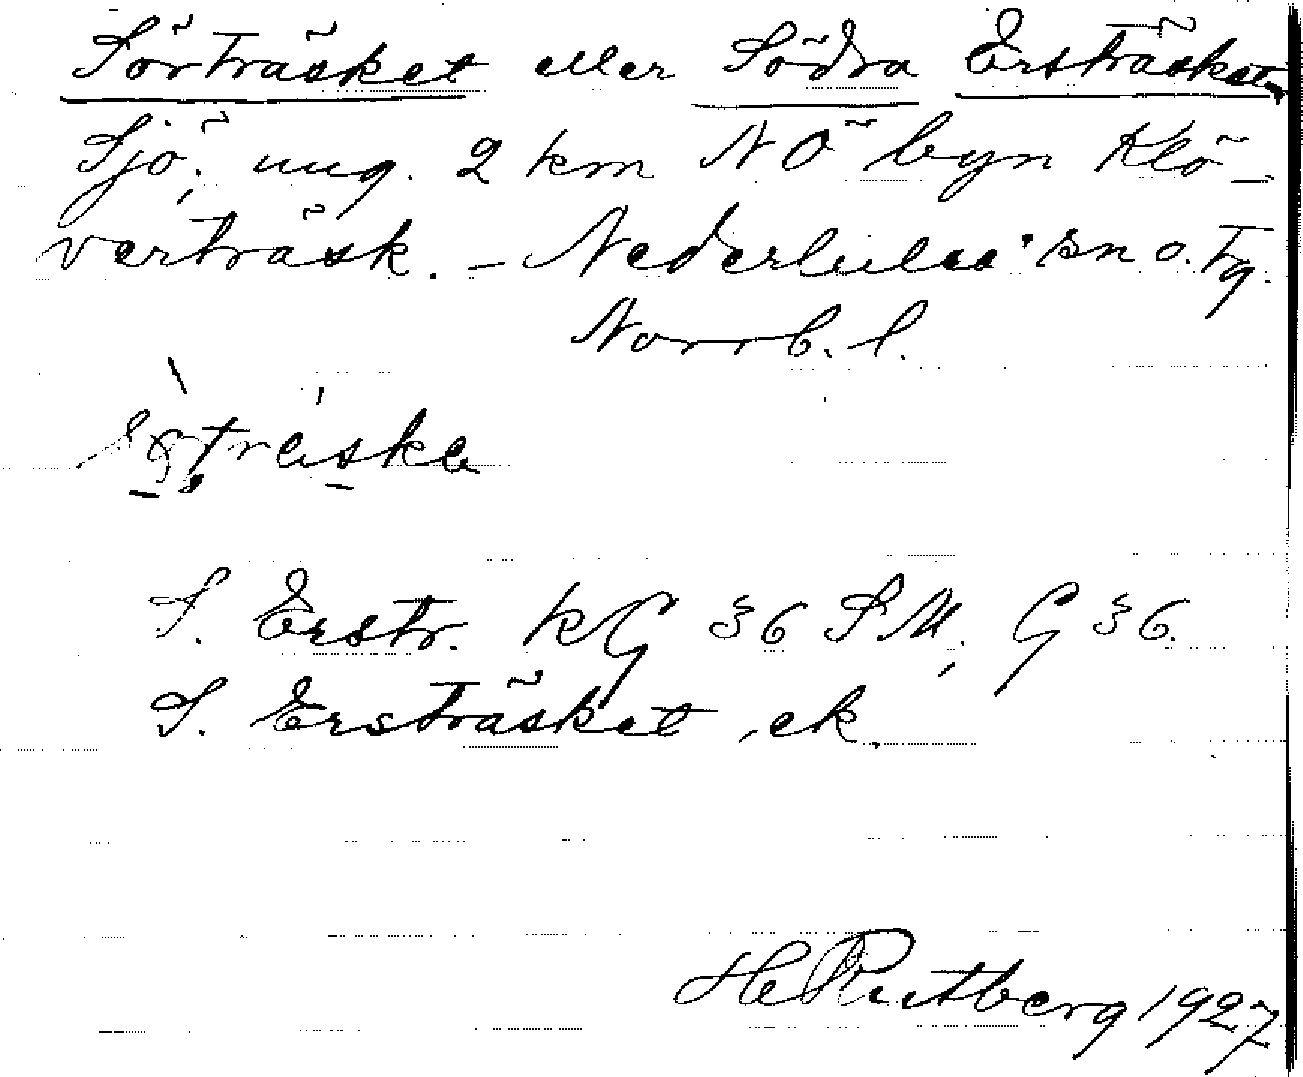 Sörträsket eller Södra Ersträsket
Sjö, ung. 2 km NÖ byn Klö-
verträsk. - Nederluleå sn o. tg.
Norrb. l.
S. Erstr. kG §6 SM, G §6.
S. Ersträsket, ek.
H Rutberg 1927